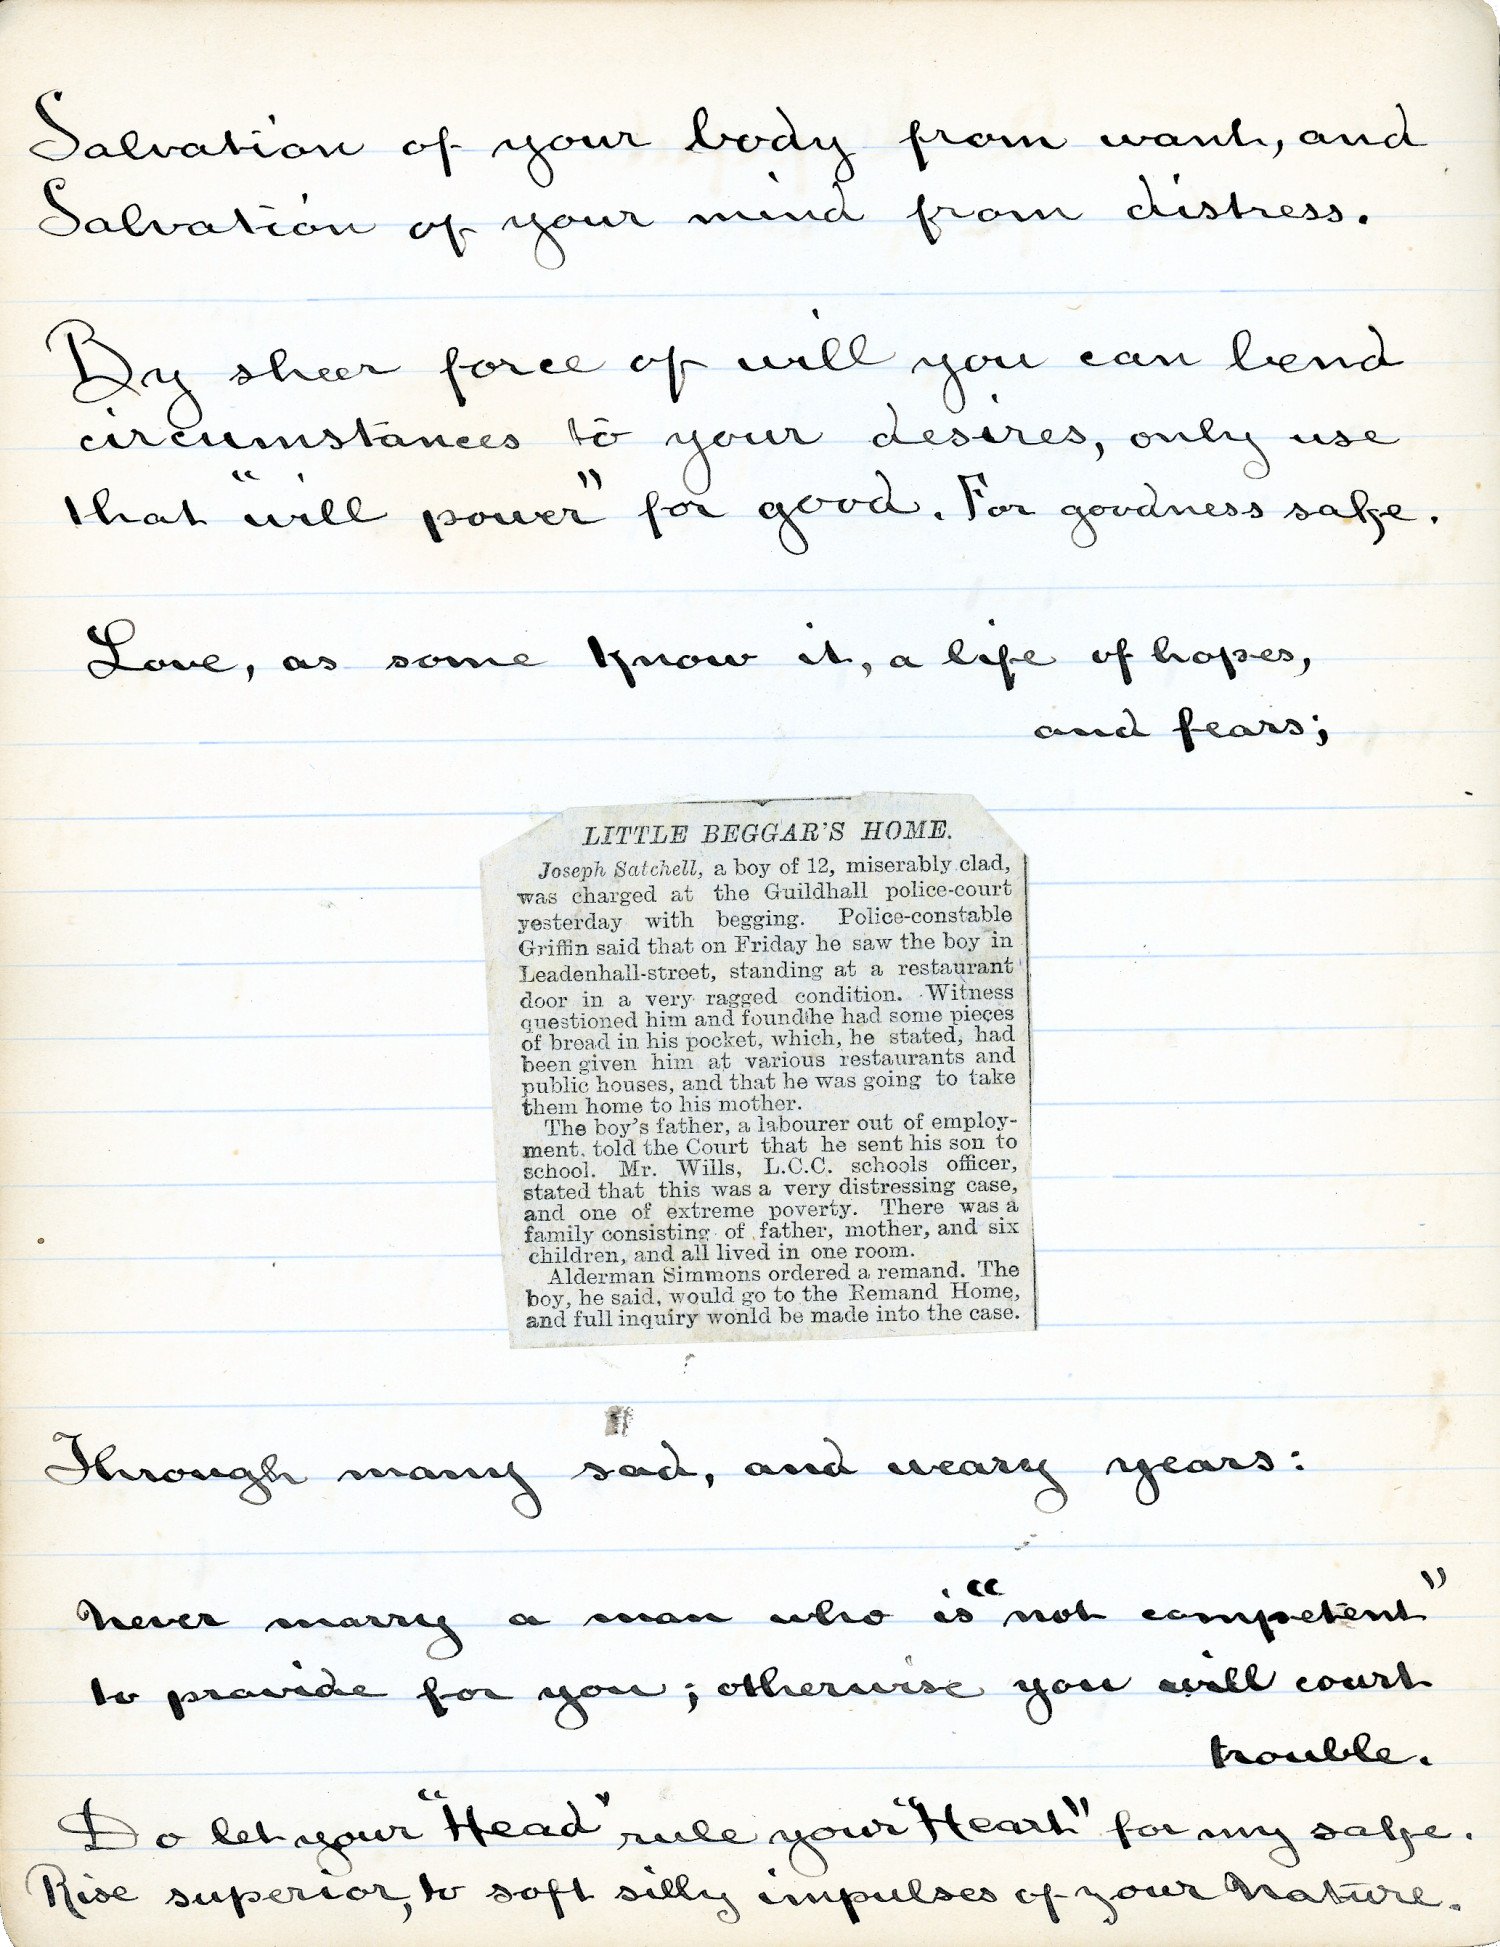 Salvation of your body from want, and
Salvation of your mind from distress.
By sheer force of will you can bend
circumstances to your desires, only use
that "will power" for good. For goodness sake.
Love, as some know it, a life of hopes,
and fears;
LITTLE BEGGAR'S HOME.
Joseph Satchell, a boy of 12, miserably clad,
was charged at the Guildhall police-court
yesterday with begging. Police-constable
Griffin said that on Friday he saw the boy in
Leadenhall-street, standing at a restaurant
door in a very ragged condition. Witness
questioned him and found he had some pieces
of bread in his pocket, which, he stated, had
been given him at various restaurants and
public houses, and that he was going to take
them home to his mother.
The boy's father, a labourer out of employ-
ment. told the Court that he sent his son to
school. Mr. Wills, L.C.C. schools officer,
stated that this was a very distressing case,
and one of extreme poverty. There was a
family consisting of father, mother, and six
children, and all lived in one room.
Alderman Simmons ordered a remand. The
boy, he said, would go to the Remand Home,
and full inquiry wonld be made into the case.
Through many sad, and weary years:
Never marry a man who is "not competent"
to provide for you; otherwise you will court
trouble.
Do let your "Head" rule your "Heart" for my sake.
Rise superior, to soft silly impulses of your Nature.